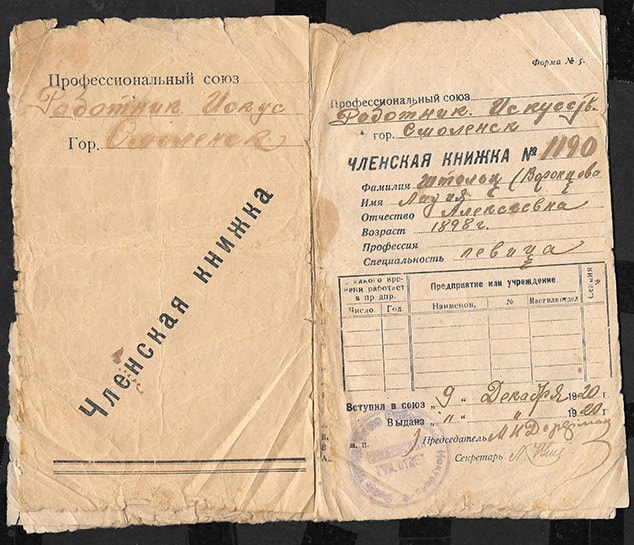 Профессиональный союз
Работник. Искус
Гор. Смоленск
Членская книжка
Форма № 5.
Профессиональный союз
Работник. Искусств.
гор. Смоленск
ЧЛЕНСКАЯ КНИЖКА № 1190
Фамилия Штольц (Воронцова
Имя Лидия
Отчество Алексеевна
Возраст 1898 г.
Профессия
Специальность певица
С какого вре-
мени работает
в пр дпр.
Предприятие или учреждение
Секция №
Число. Год.
Наименов.
№
Маст. или отдел
Вступил в союз „ 9 „ Декабря 1920 г
Выдана „ 11 „ „ 1920 г
м. п.
Председатель
Секретарь